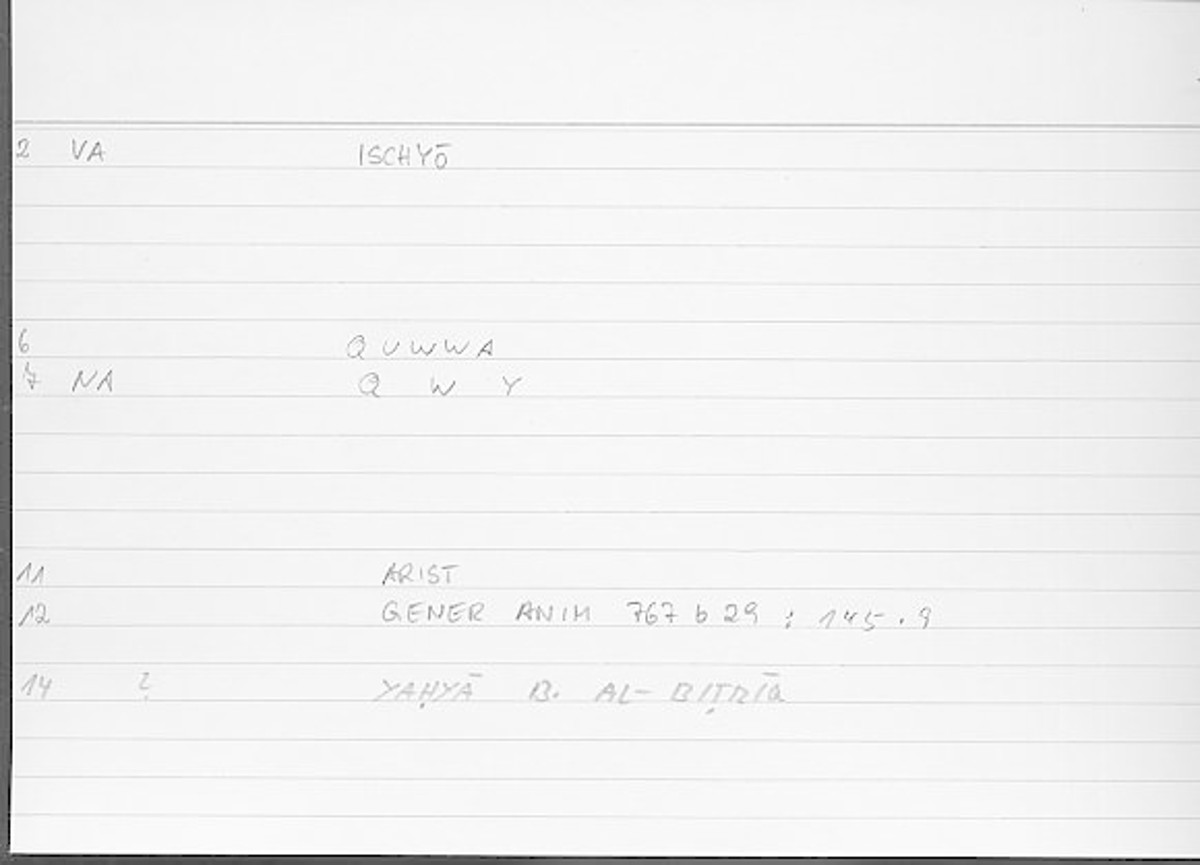 2 VA ISCHYŌ
6 QUWWA
7 NA Q W Y
11 ARIST
12 GENER ANIM 767 b 29 : 145.9
14 ? YAḤYĀ B. AL-BIṬRĪQ